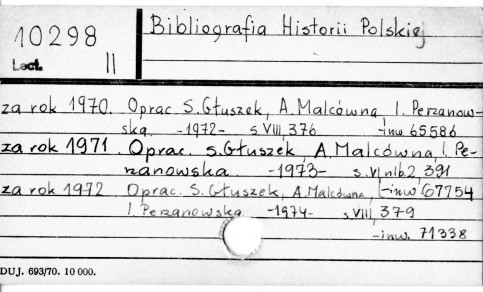 10298
Lect. II
Bibliografia Historii Polskiej
za rok 1970. Oprac. S. Głuszek, A. Malcówna, I. Perzanow-
ska. -1972- s. VIII, 376 -inw. 65586
za rok 1971 Oprac. S. Głuszek, A. Malcówna, I. Pe-
rzanowska. -1973- s. VI, nlb. 2, 391
za rok 1972 Oprac. S. Głuszek, A. Malcówna, -inw. 67754
I. Perzanowska -1974- s. VIII, 379
-inw. 71338
DUJ. 693/70. 10 000.